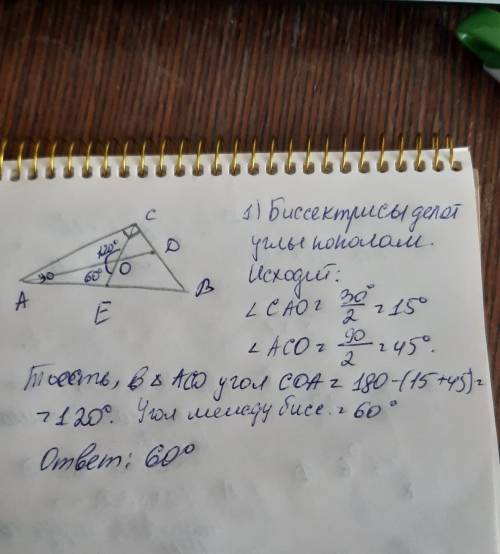 C
1) Биссектрисы делят
углы пополам.
Исходит:
120°
D
O
60°
A
E
B
∠ CAO = 30°/2 = 15°
∠ ACO = 90/2 = 45°.
Тоесть, в △ ACO угол COA = 180-(15+45)=
=120°. Угол между бисс. = 60°
Ответ: 60°